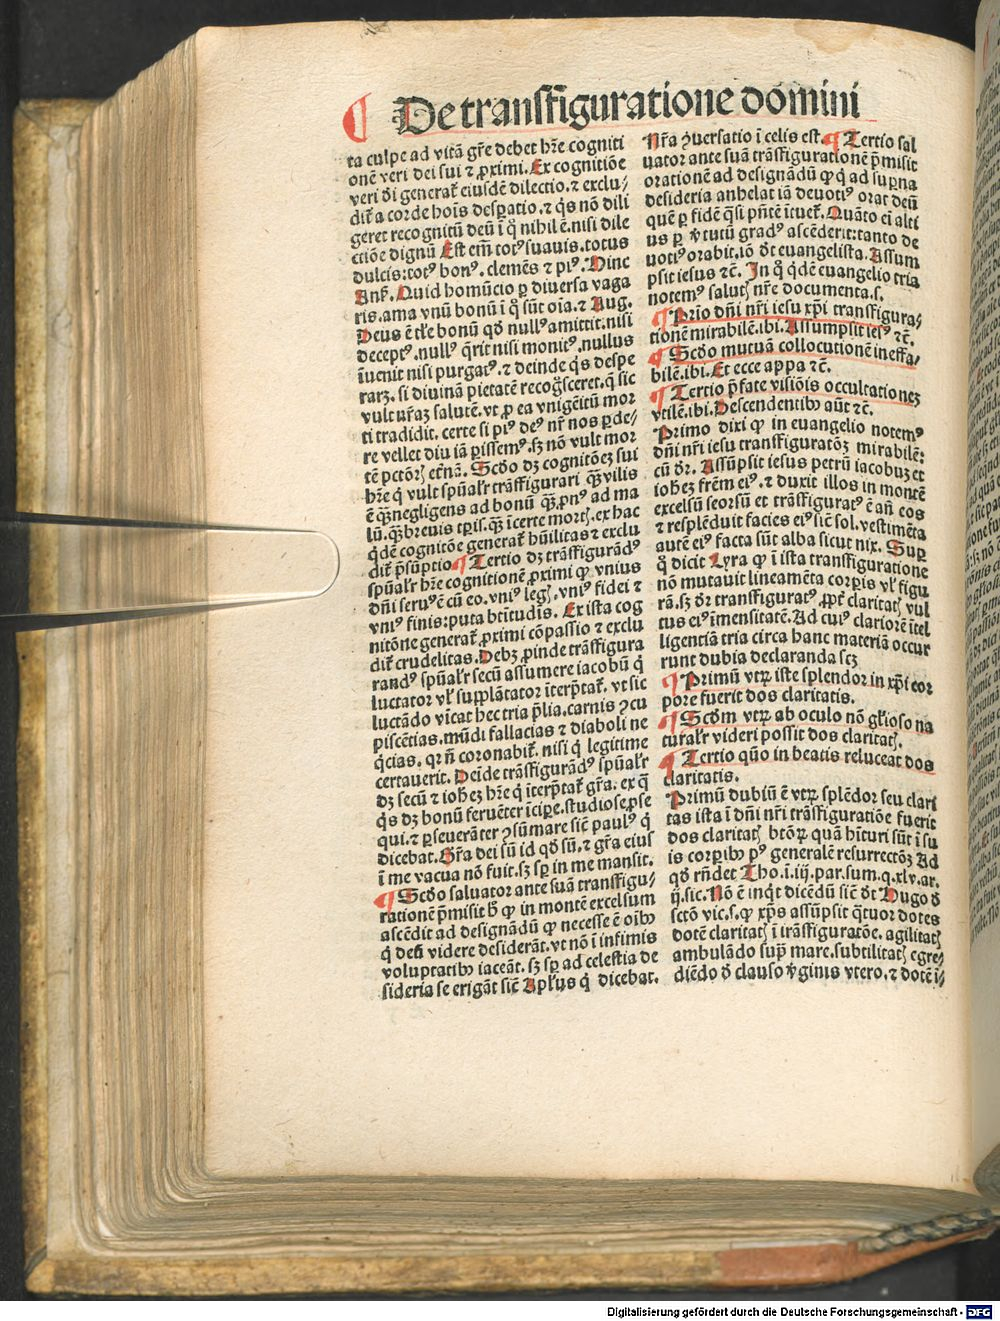 De transfiguratione domini
ta culpe ad vitā gr̄e debet hr̄e cogniti
onē veri dei sui ⁊ ꝓximi. Ex cognitiōe
veri dī generat̄ eiusdē dilectio. ⁊ exclu/
dit̄ a corde hoīs desꝑatio. ⁊ q̄s nō dili
geret recognitū deū ī q̊ nihil ē. nisi dile
ctiōe dignū Est em̄ totꝰ suauis. totus
dulcis: totꝰ bonꝰ. clemēs ⁊ piꝰ. Hinc
Ans̄. Quid homūcio ꝑ diuersa vaga
ris. ama vnū bonū ī q̊ sūt oīa. ⁊ Aug.
Deus ē tl̄e bonū qđ nullꝰ amittit. nisi
deceptꝰ. nullꝰ q̄rit nisi monitꝰ. nullus
īuenit nisi purgatꝰ. ⁊ deinde q̄s despe
raꝝ. si diuinā pietatē recoḡsceret. q̄ sic
vult vr̄aꝫ salutē. vt ꝓ ea vnigēitū mor
ti tradidit. certe si piꝰ deꝰ nr̄ nos ꝑde/
re vellet diu iā ꝑissemꝰ. sꝫ nō vult mor
tē pctōꝝ et̄nā. Scđo dꝫ cognitōeꝫ sui
hr̄e q̇ vult spūalr̄ trāsfigurari qꝫ vilis
ē qꝫ negligens ad bonū qꝫ ꝓnꝰ ad ma
lū. qꝫ breuis tꝑis. qꝫ īcerte mortꝭ. ex hac
q̄dē cognitōe generat̄ hūilitas ⁊ exclu
dit̄ p̄sūptio ¶ Tertio dꝫ trāsfigurādꝰ
spūalr̄ hr̄e cognitionē ꝓximi ꝙ vnius
dn̄i seruꝰ ē cū eo. vniꝰ legꝭ. vniꝰ fidei ⁊
vniꝰ finis: puta btītudīs. Ex ista cog
nitōne generat̄ ꝓximi cōpassio ⁊ exclu
dit̄ crudelitas. Debꝫ ꝓinde trāsfigura
randꝰ spūalr̄ secū assumere iacobū q̇
luctator vl̓ supplātator īterp̄tat̄. vt sic
luctādo vīcat hec tria p̄lia. carnis ꝯcu
piscētias. mūdi fallacias ⁊ diaboli ne
q̄cias. qꝛ n̄ coronabit̄. nisi q̇ legitime
certauerit. Deīde trāsfigurādꝰ spūalr̄
dꝫ secū ⁊ iohēꝫ hr̄e q̇ īterp̄tat̄ gr̄a. ex q̄
q̄s dꝫ bonū feruēter īciꝑe. studiose ꝓse
qui. ⁊ ꝑseuerāter ꝯsūmare sic̄ paulꝰ q̇
dicebat. Gr̄a dei sū id qđ sū. ⁊ gr̄a eius
ī me vacua nō fuit. sꝫ sꝑ in me mansit.
¶ Scđo saluator ante suā transfigu/
rationē p̄misit h̄ ꝙ in montē excelsum
ascēdit ad designādū ꝙ necesse ē oībꝰ
q̇ deū videre desiderāt. vt nō ī infimis
voluptatibꝰ iaceāt. sꝫ sꝑ ad celestia de
sideria se erigāt sic̄ Apl̓us q̇ dicebat.
Nr̄a ꝯuersatio ī celis est ¶ Tertio sal
uator ante suā trāsfigurationē p̄misit
orationē ad designādū ꝙ q̇ ad suꝑna
desideria anhelat iā deuotiꝰ orat deū
quē ꝑ fidē q̄si pn̄tē ītuet̄. Quāto ei̅ alti
us ꝑ v̓tutū gradꝰ ascēderit: tanto de
uotiꝰ orabit. iō dt̄ euangelista. Assum
psit iesus ⁊c̄. In q̊ q̇dē euangelio tria
notemꝰ salutꝭ nr̄e documenta. s.
¶ Prīo dn̄i nr̄i iesu xp̄i transfigura/
tionē mirabilē. ibi. Assumpsit iesꝰ ⁊c̄.
¶ Scđo mutuā collocutionē ineffa/
bilē. ibi. Et ecce appa ⁊c̄.
¶ Tertio p̄fate visiōis occultationeꝫ
vtilē. ibi. Descendentibꝰ aūt ⁊c̄.
Primo dixi ꝙ in euangelio notemꝰ
dn̄i nr̄i iesu transfiguratōꝫ mirabilē:
cū dr̄. Assūpsit iesus petrū iacobuꝫ et
iohēꝫ frēm eiꝰ. ⁊ duxit illos in montē
excelsū seorsū et trāsfiguratꝰ ē an̄ eos
⁊ resplēduit facies eiꝰ sic̄ sol. vestimēta
autē eiꝰ facta sūt alba sicut nix. Suꝑ
q̊ dicit Lyra ꝙ ī ista transfiguratione
nō mutauit lineamēta corꝑis vl̓ figu
rā. sꝫ dr̄ transfiguratꝰ, ꝓpt̄ claritatꝭ vul
tus eiꝰ īmensitatē. Ad cuiꝰ clariorē ītel
ligentiā tria circa hanc materiā occur
runt dubia declaranda scꝫ
¶ Primū vtꝝ iste splendor in xp̄i cor
pore fuerit dos claritatis.
¶ Scđm vtꝝ ab oculo nō gl̓ioso na
turalr̄ videri possit dos claritatꝭ.
¶ Tertio quō in beatis reluceat dos
claritatis.
Primū dubiū ē vtꝝ splēdor seu clari
tas ista ī dn̄i nr̄i trāsfiguratiōe fuerit
dos claritatꝭ btōꝝ quā hīturi sūt ī su
is corꝑibꝰ pꝰ generalē resurrectōꝫ Ad
qđ rn̄det Tho. ī. iij. par. sum. q. xlv. ar.
ij. sic. Nō ē inq̇t dicēdū sic̄ dt̄ Hugo đ
sctō vic. s. ꝙ xp̄s assūpsit q̄tuor dotes
dotē claritatꝭ ī trāsfiguratōe. agilitatꝭ
ambulādo suꝑ mare. subtilitatꝭ egre/
diēdo đ clauso v̓ginis vtero. ⁊ dotē ī/
Digitalisierung gefördert durch die Deutsche Forschungsgemeinschaft - DFG